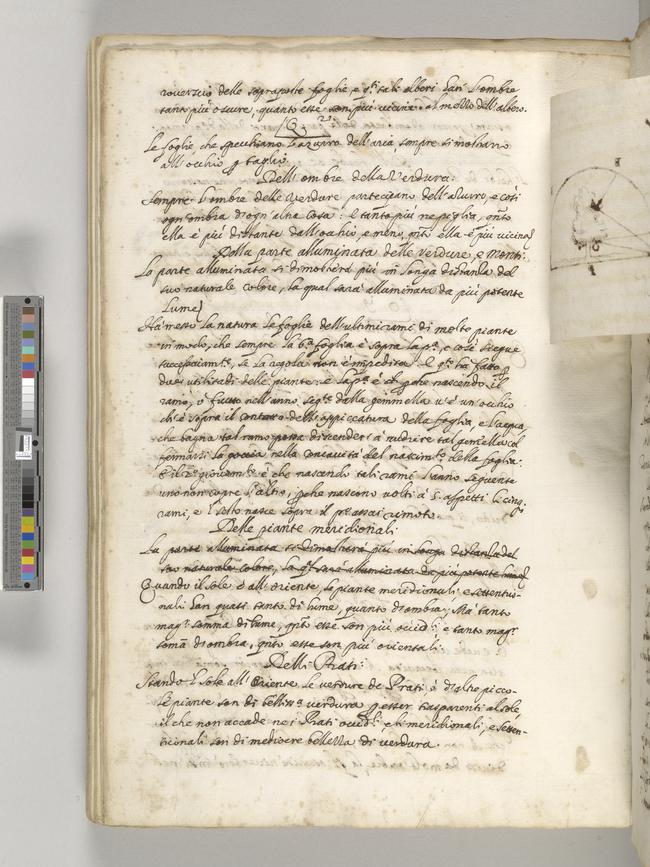 roverscio delle sopraposte foglie e q.sti tali alberi han l'ombre
tanto più oscure, quanto esse son più vicine al mezzo dell'albero.
Le foglie che spechiano l'azurro dell'aria, sempre si mostrano
all'occhio p taglio.
Dell'ombre della Verdura:
Sempre l'ombre delle verdure partecipano dell'azurro, e così
ogn'ombra d'ogn'altra cosa: e tanto più ne piglia, q.nto
ella è più distante dall'occhio, e meno, q.nto ella è più vicina
Della parte alluminata delle Verdure, e Monti:
La parte alluminata si dimostrerà più in longa distanza del
suo naturale colore, la qual sarà alluminata da più potente
Lume
Ha messo la natura le foglie dell'ultimi rami di molte piante
in modo, che sempre la 6.a foglia è sopra la p.a, e così siegue
successivam.te, se la regola non è impedita: e q.sto ha fatto p
due utilità delle piante: e la p.a è che nascendo il
ramo, o frutto nell'anno seg.te dalla gemmella v'è un occhio
ch'è sopra il contatto dell'appiccatura della foglia, e l'acqua,
che bagna tal ramo possa discender à nudrire tal gemella col
fermarsi la goccia nella concavità del nascim.to della foglia:
E il 2.o giovam.to è che nascendo tali rami l'anno seguente
uno non copre l'altro, perche nascono volti à 5. aspetti li cinq.
rami, e il sesto nasce sopra il p.o assai rimoto
Delle piante meridionali:
La parte alluminata si dimostrerà più in longa distanza del
suo naturale colore, la q.l sarà alluminata da più potente lume
Quando il sole è all'oriente, le piante meridionali e settentrio-
nali han quasi tanto di lume, quanto d'ombra; Ma tanto
mag.r somma di lume, q.nto esse son più occid.li e tanto mag.r
soma d'ombra, q.nto esse son più orientali:
Delli Prati:
Stando il sole all'Oriente le verdure de Prati e d'altre picco-
le piante son di bellis.ma verdura p esser trasparenti al sole
il che non accade ne i Prati occid.li e li meridionali, e setten-
trionali son di mediocre bellezza di verdura.